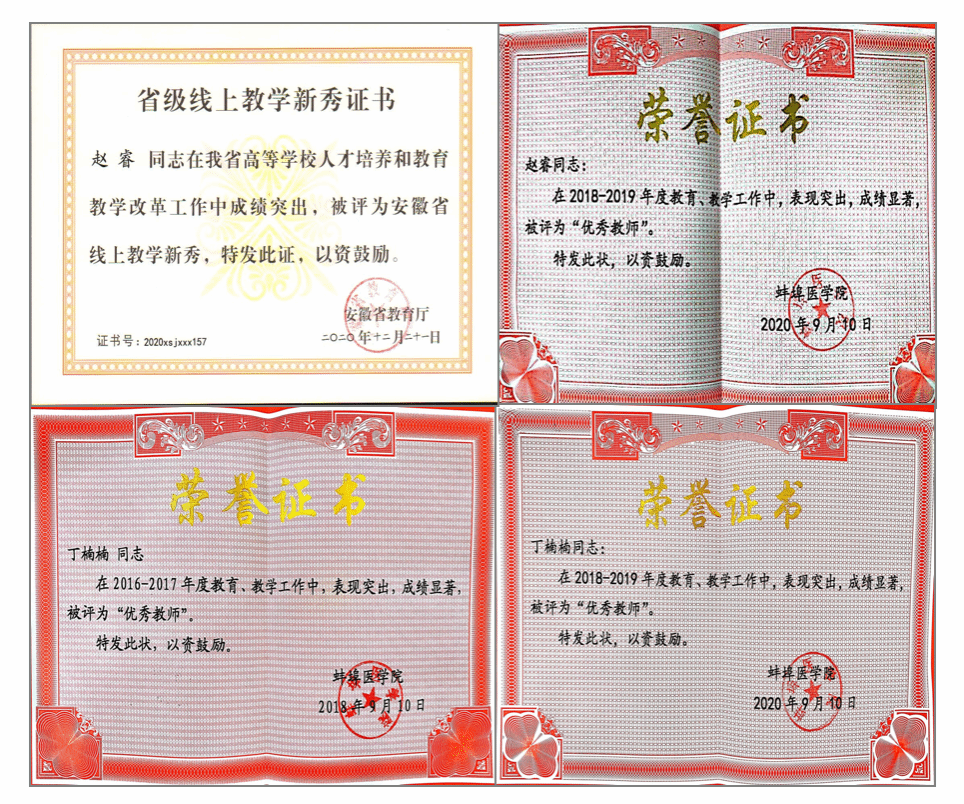 省级线上教学新秀证书
赵 睿 同志在我省高等学校人才培养和教育
教学改革工作中成绩突出，被评为安徽省
线上教学新秀，特发此证，以资鼓励。
安徽省教育厅
证书号：2020xsjxxx157
二〇二〇年十二月二十一日
荣誉证书
赵睿同志：
在2018-2019年度教育、教学工作中，表现突出，成绩显著，
被评为“优秀教师”。
特发此状，以资鼓励。
蚌埠医学院
2020年9月10日
荣誉证书
丁楠楠 同志
在2016-2017年度教育、教学工作中，表现突出，成绩显著，
被评为“优秀教师”。
特发此状，以资鼓励。
蚌埠医学院
2018年9月10日
荣誉证书
丁楠楠同志：
在2018-2019年度教育、教学工作中，表现突出，成绩显著，
被评为“优秀教师”。
特发此状，以资鼓励。
蚌埠医学院
2020年9月10日